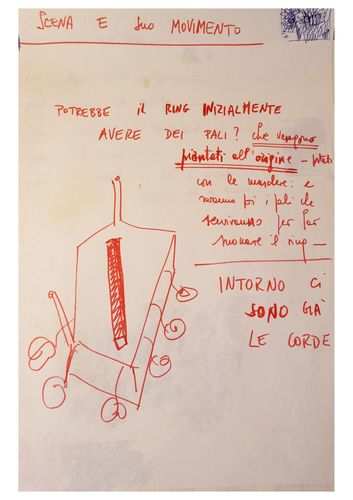 SCENA E suo MOVIMENTO
POTREBBE il RING INIZIALMENTE
AVERE DEI PALI? che vengono
piantati all'origine - portati
con le mordere: e
saranno poi i pali che
serviranno per far
suonare il ring -
INTORNO CI
SONO GIÀ
LE CORDE